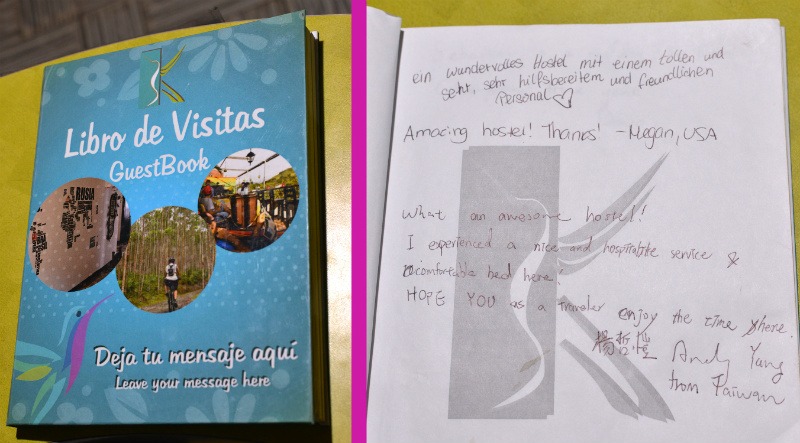 Libro de Visitas
GuestBook
RUSIA
Deja tu mensaje aquí
Leave your message here
ein wundervolles Hostel mit einem tollen und
sehr, sehr hilfsbereitem und freundlichen
Personal
Amazing hostel! Thanks! -Megan, USA
What an awesome hostel!
I experienced a nice and hospitable service &
comfortable bed here!
HOPE YOU as a traveler enjoy the time here.
楊哲
Andy Yang
from Taiwan